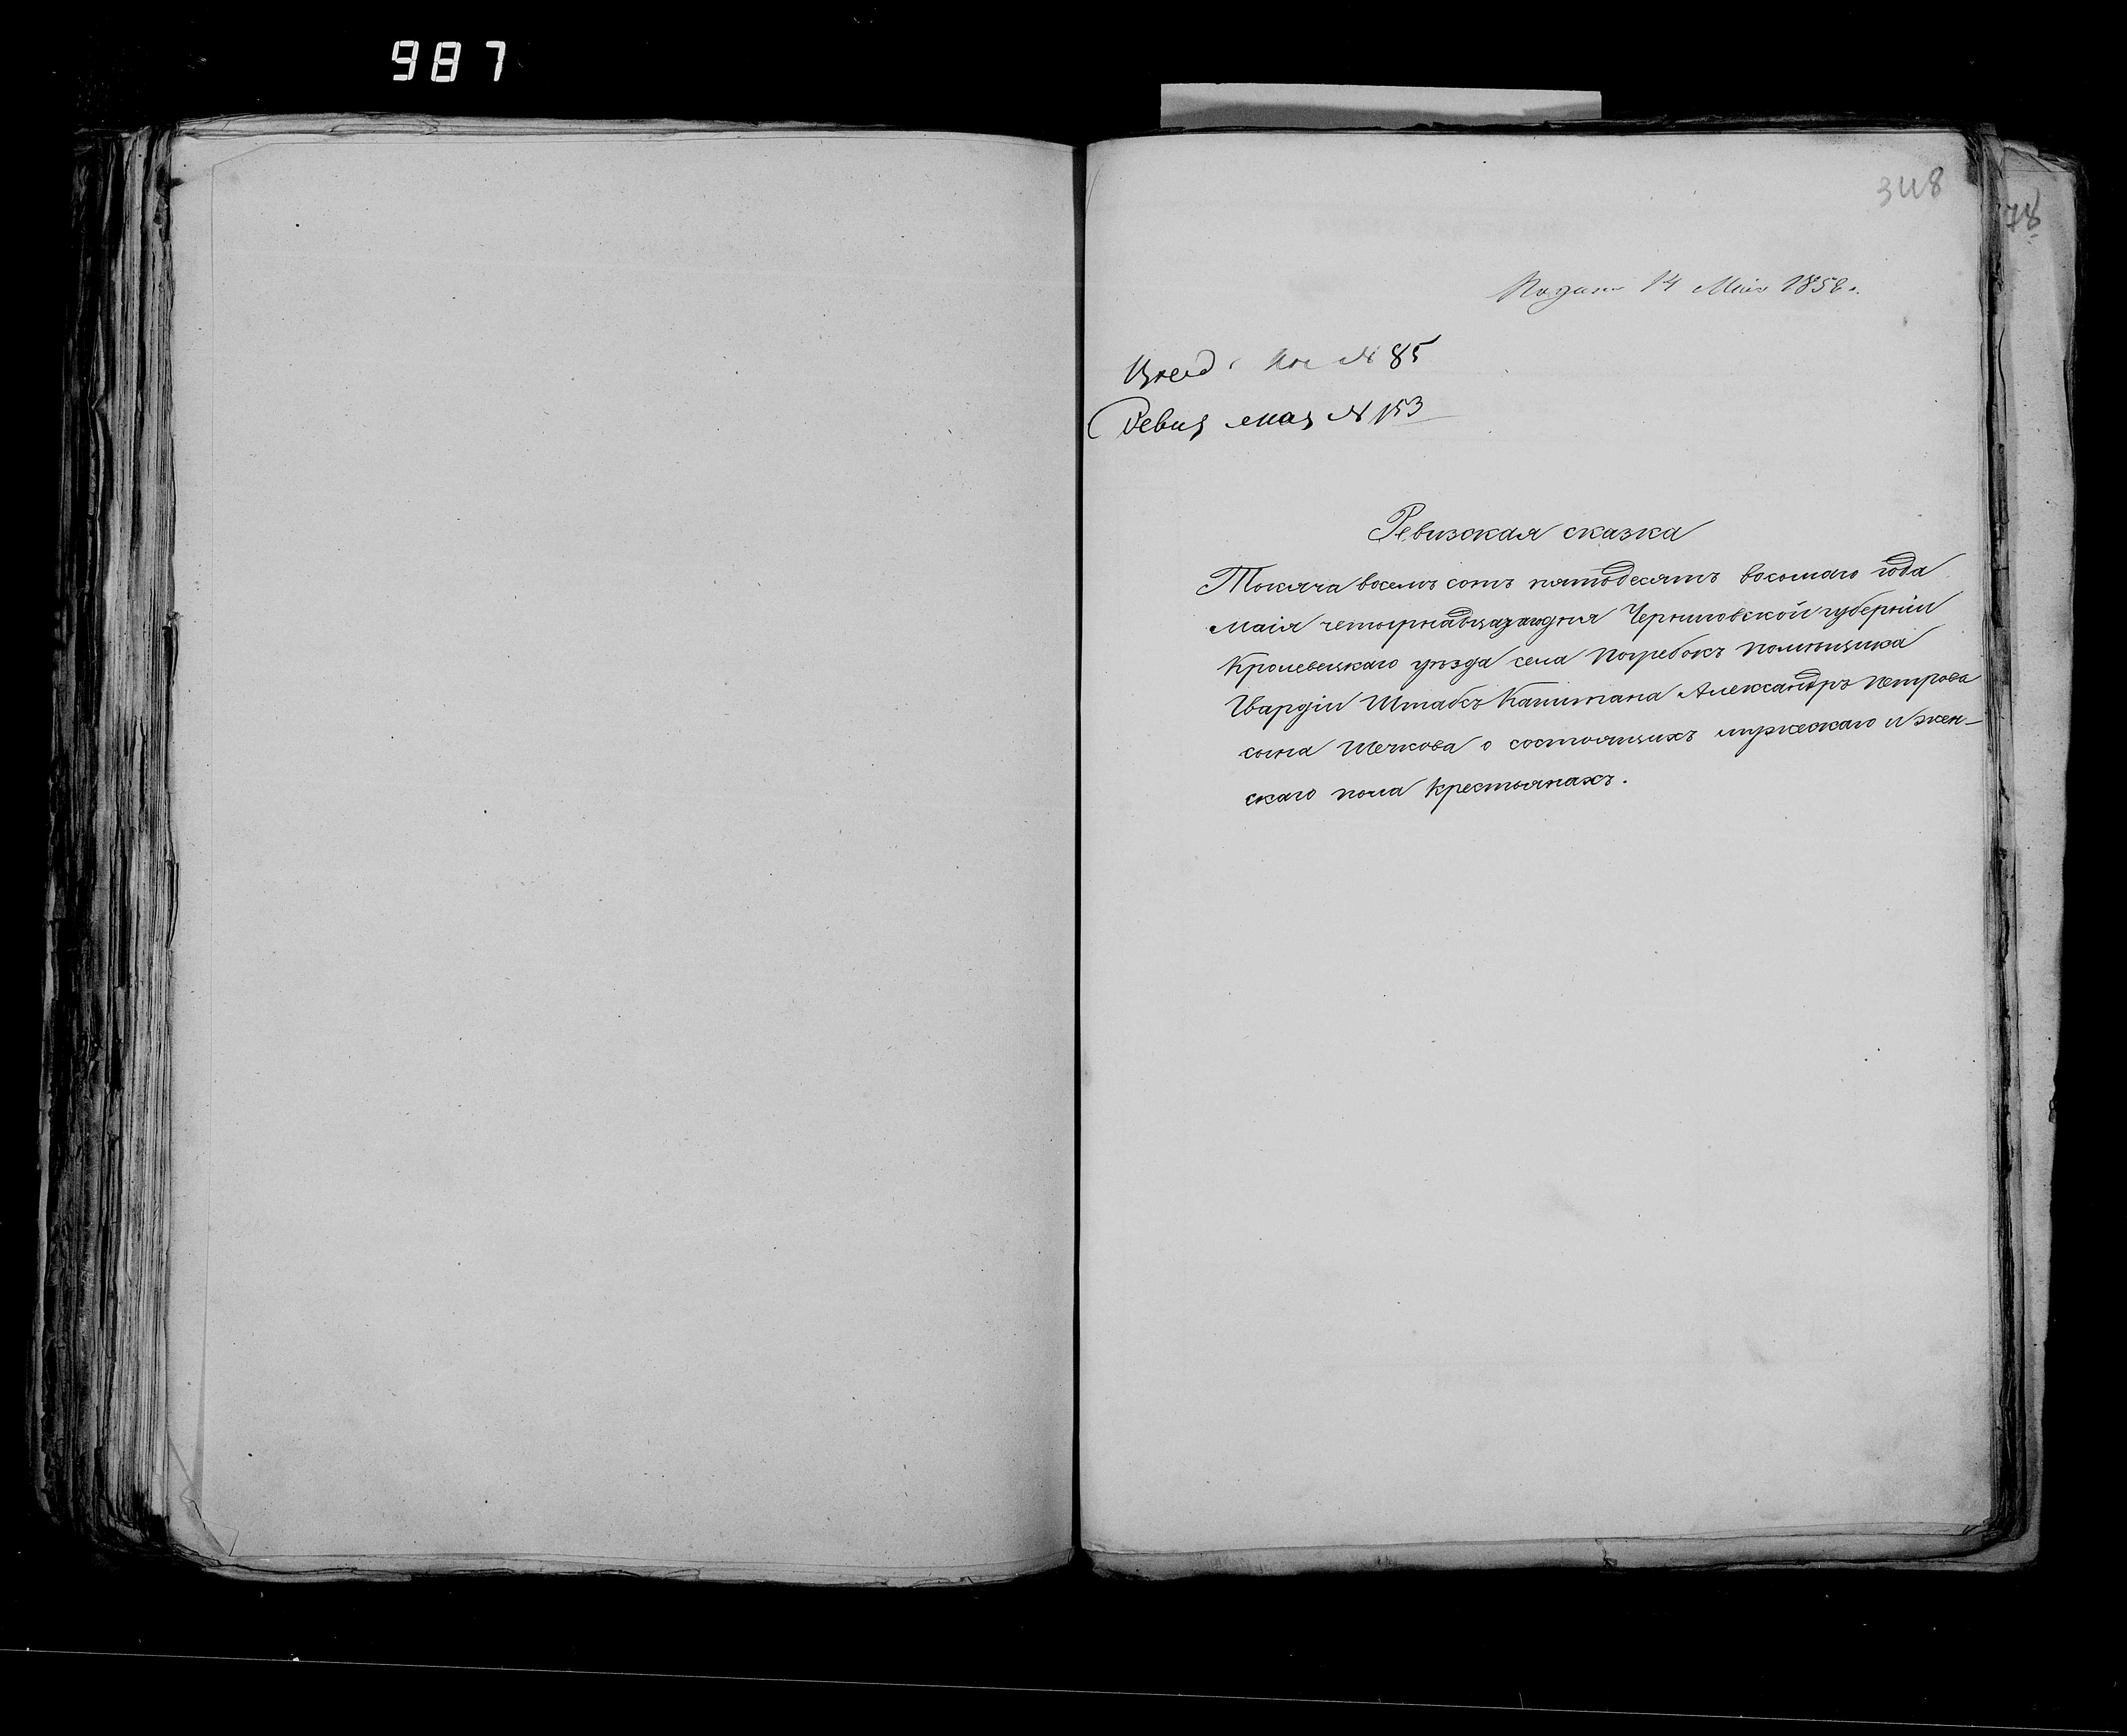 987
348
78
Подана 14 Мая 1858 г.
№ 85
Ревиз сказ № 153
Ревизская сказка
Тысяча восемь сотъ пятьдесятъ восьмаго года
Маія четырнадцаго дня Черниговской губерніи
Кролевецкаго уѣзда села Погребокъ помѣщика
Гвардіи Штабсъ Капитана Александръ Петрова
сына Шечкова о состоящихъ мужескаго и жен-
скаго пола крестьянахъ.